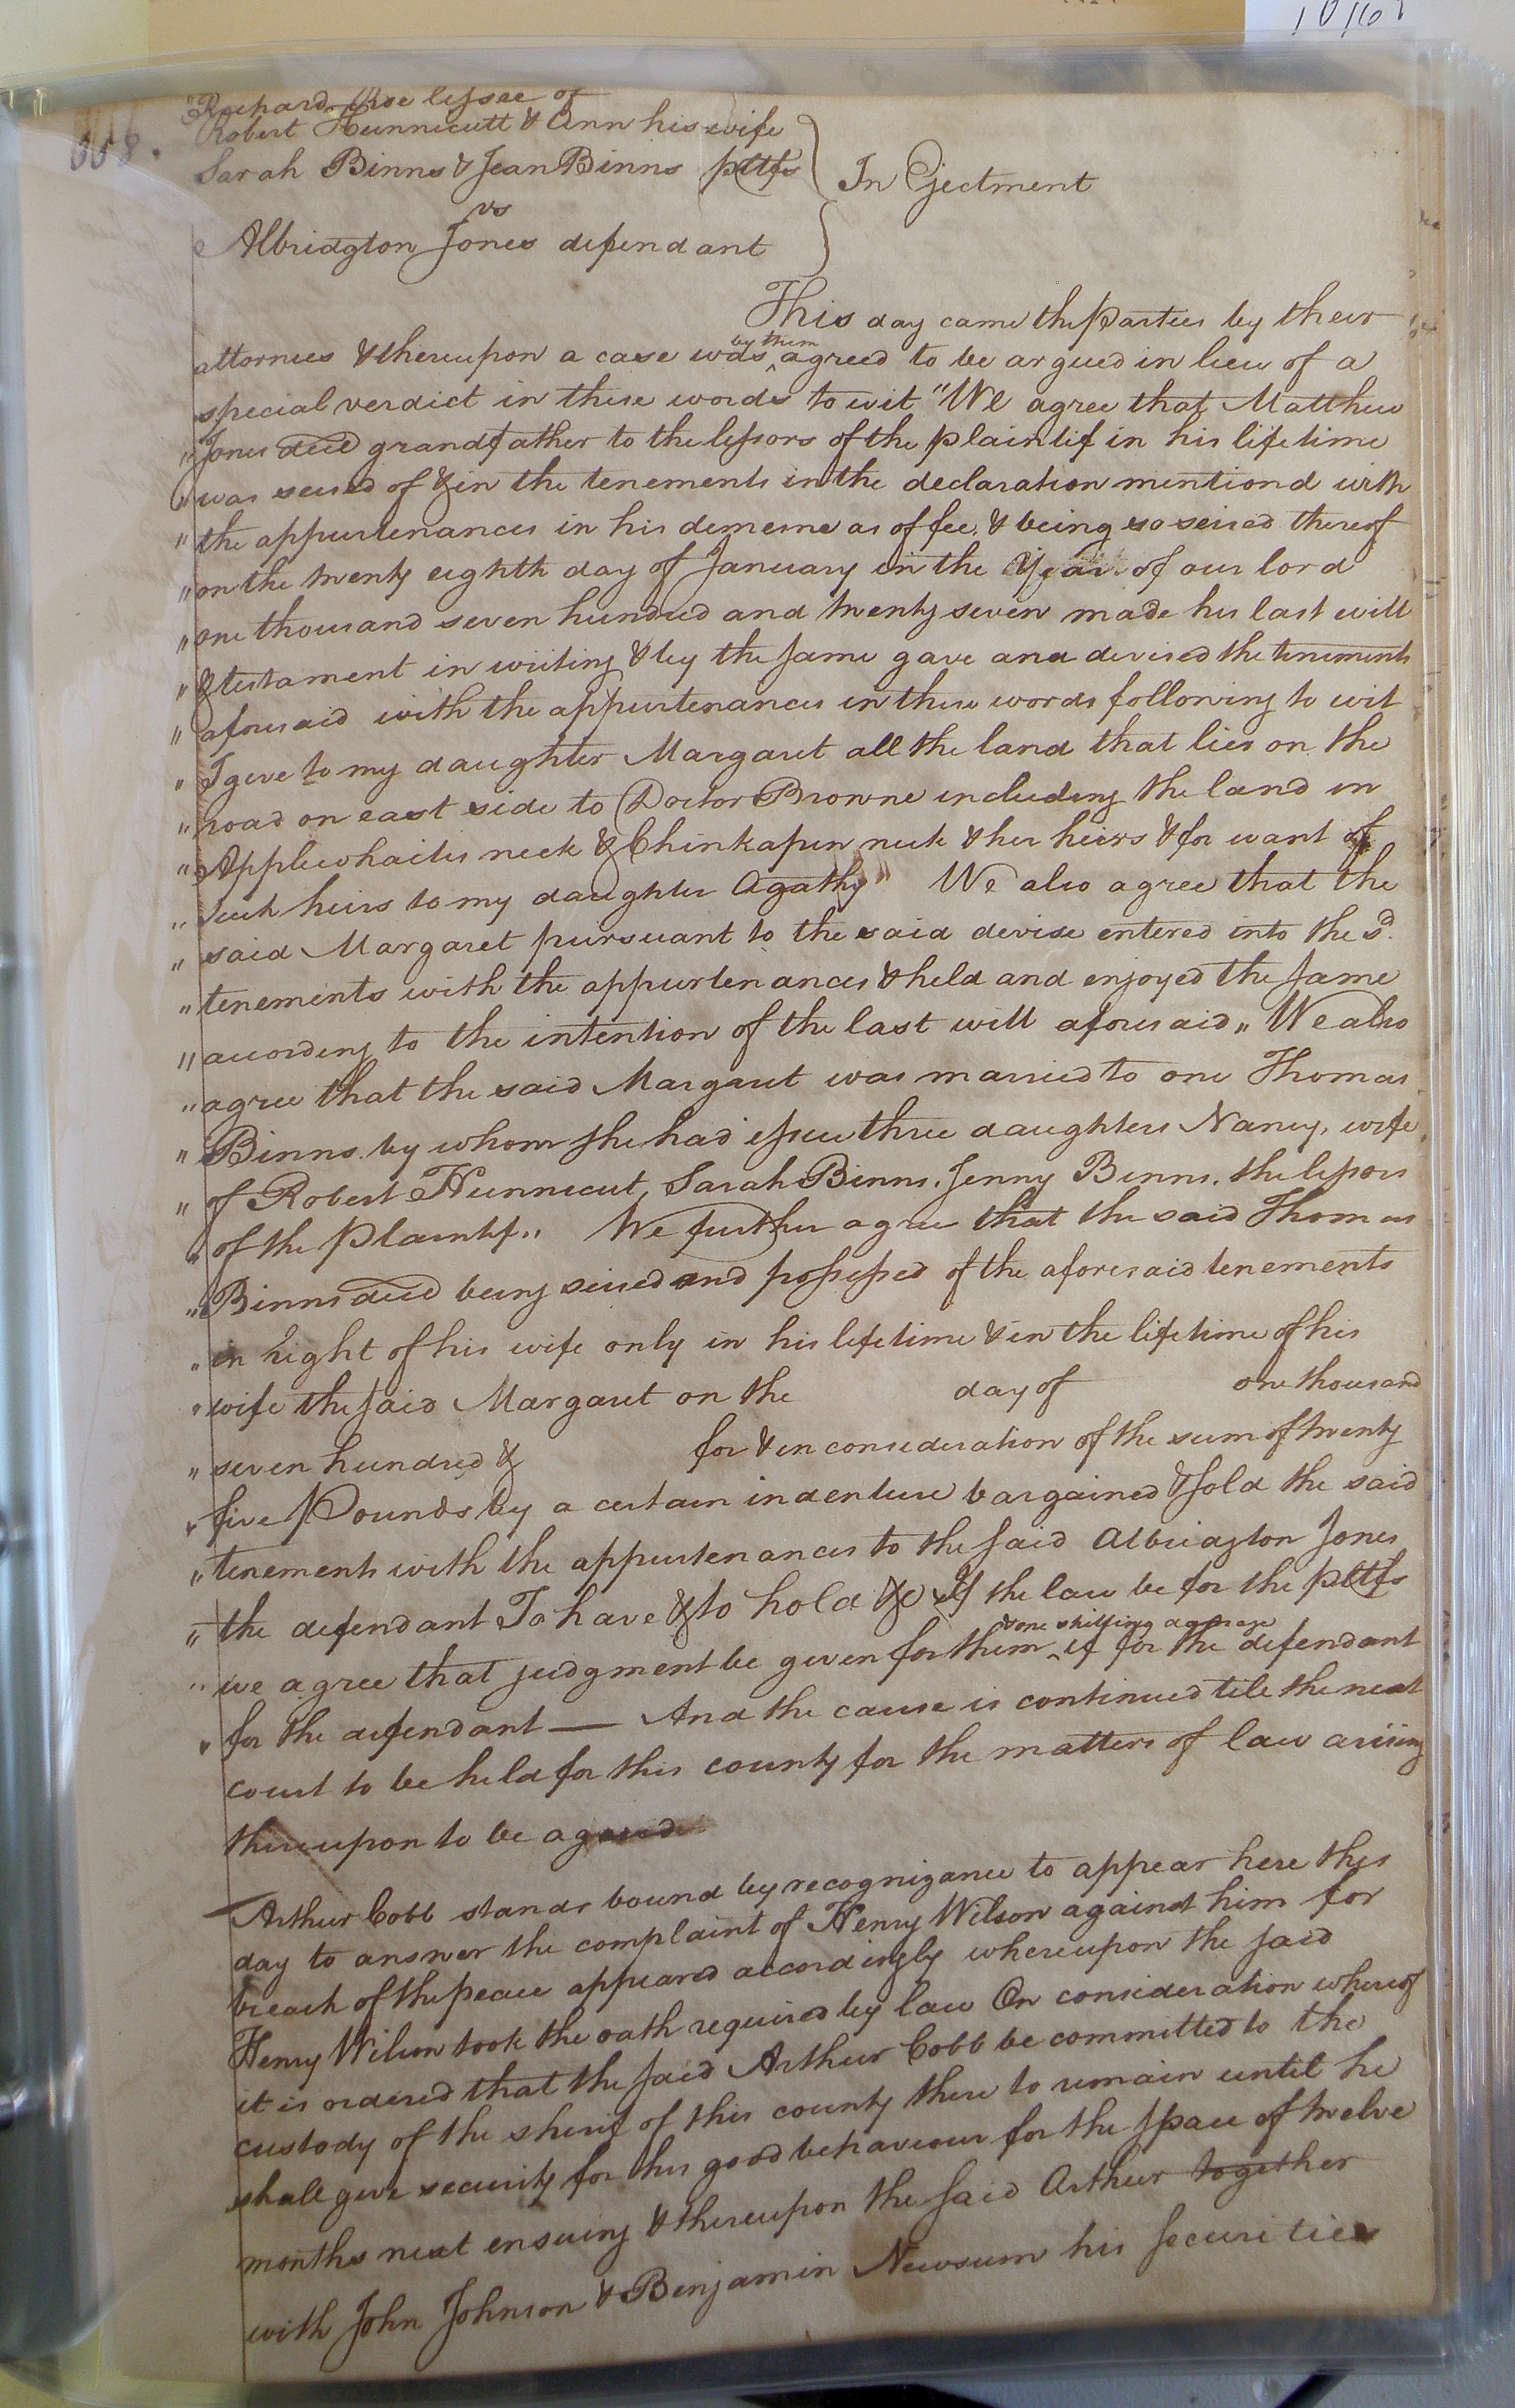 Richard Rise lessee of
Robert Hunnicutt & Ann his wife
Sarah Binns & Jean Binns pltfs
In Ejectment
vs
Albridgton Jones defendant
This day came the Parties by their
attornies & thereupon a case was by them agreed to be argued in lieu of a
special verdict in these words to wit "We agree that Matthew
" Jones decd grandfather to the lessors of the plaintif in his lifetime
" was seised of & in the tenements in the declaration mentiond with
" the appurtenances in his demesne as of fee. & being so seised thereof
" on the twenty eighth day of January in the Year of our lord
" one thousand seven hundred and twenty seven made his last will
" & testament in writing & by the same gave and devised the tenements
" aforesaid with the appurtenances in these words following to wit
" I give to my daughter Margaret all the land that lies on the
" road on east side to Doctor Browne including the land in
" Applewhaites neck & Chinkapen neck & her heirs & for want of
" such heirs to my daughter Agathy" We also agree that the
" said Margaret pursuant to the said devise entered into the sd.
" tenements with the appurtenances & held and enjoyed the same
" according to the intention of the last will aforesaid" We also
" agree that the said Margaret was married to one Thomas
" Binns by whom she had issue three daughters Nancy, wife
" of Robert Hunnicut, Sarah Binns, Jenny Binns, the lessors
" of the Plaintif" We further agree that the said Thomas
" Binns decd being seised and possessed of the aforesaid tenements
" in right of his wife only in his lifetime & in the lifetime of his
" wife the said Margaret on the day of one thousand
" seven hundred & for & in consideration of the sum of twenty
" five Pounds by a certain indenture bargained & sold the said
" tenements with the appurtenances to the said Albridgton Jones
" the defendant To have & to hold &c If the law be for the pltfs
" we agree that judgment be given for them & one shilling damage if for the defendant
" for the defendant — And the cause is continued till the next
court to be held for this county for the matters of law arising
thereupon to be
Arthur Cobb stands bound by recognizance to appear here this
day to answer the complaint of Henry Wilson against him for
breach of the peace appeared accordingly whereupon the said
Henry Wilson took the oath required by law On consideration whereof
it is ordered that the said Arthur Cobb be committed to the
custody of the sherif of this county there to remain until he
shall give security for his good behaviour for the space of twelve
months next ensuing & thereupon the said Arthur together
with John Johnson & Benjamin Newsum his securities